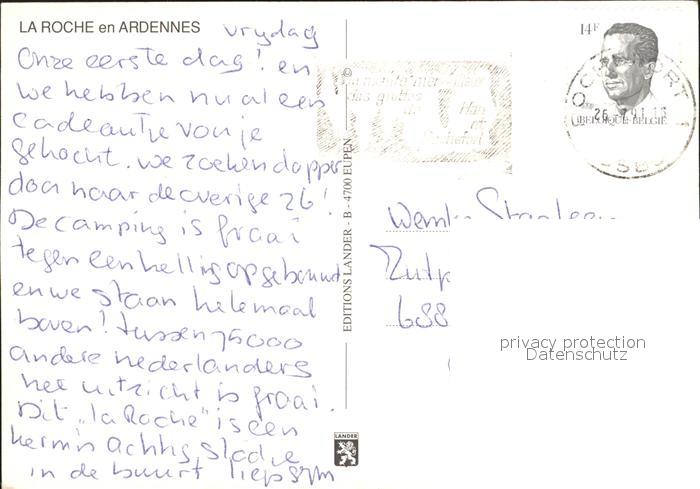 LA ROCHE en ARDENNES
vrydag
Onze eerste dag! en
we hebben nu al een
cadeautje von je
gekocht. we zoeken dapper
door naar de overige 26!
De camping is fraai
tegen een helling opgebouwd
en we staan helemaal
boven! tussen 75000
andere nederlanders
het uitzicht is fraai.
Dit "la Roche" is een
kermisachtig stadje
in de buurt liefs
EDITIONS LANDER - B - 4700 EUPEN
LANDER
des grottes
de Han
et
Rochefort
14F
BELGIQUE-BELGIE
Zutp
688
privacy protection
Datenschutz